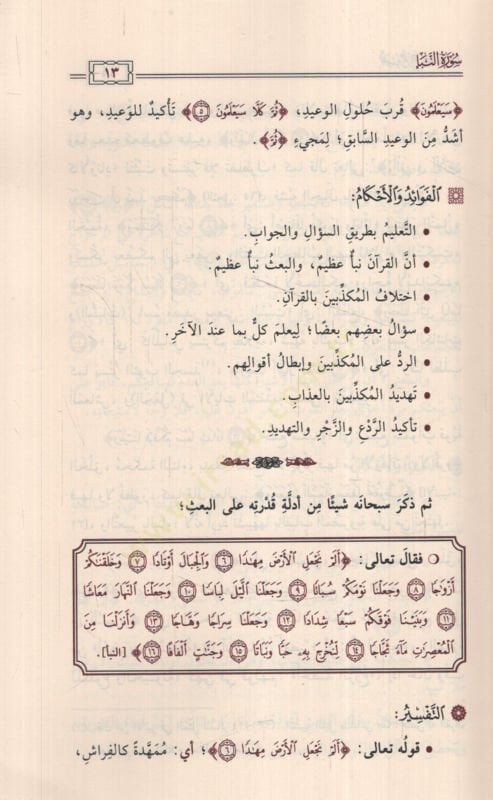 سُورَةُ النَّبَإِ
١٣
﴿سَيَعْلَمُونَ﴾ قُربَ حُلولِ الوعيدِ، ﴿ثُمَّ كَلَّا سَيَعْلَمُونَ ٥﴾ تَأكيدٌ للوَعيدِ، وهو
أشَدُّ مِنَ الوعيدِ السَّابقِ؛ لِمَجيءِ ﴿ثُمَّ﴾.
الفَوَائِدُ وَالأَحْكَامُ:
• التَّعليمُ بطريقِ السؤالِ والجوابِ.
• أنَّ القرآنَ نبأٌ عظيمٌ، والبعثُ نبأٌ عظيمٌ.
• اختلافُ المُكذِّبينَ بالقرآنِ.
• سؤالُ بعضِهم بعضًا؛ ليعلمَ كلٌّ بما عندَ الآخَرِ.
• الردُّ على المُكذِّبينَ وإبطالُ أقوالِهم.
• تهديدُ المُكذِّبينَ بالعذابِ.
• تأكيدُ الرَّدْعِ والزَّجْرِ والتهديدِ.
ثم ذكَرَ سبحانَه شيئًا مِن أدلَّةِ قُدْرَتِه على البعثِ؛
○ فقالَ تعالى: ﴿أَلَمْ نَجْعَلِ الْأَرْضَ مِهَادًا ٦ وَالْجِبَالَ أَوْتَادًا ٧ وَخَلَقْنَاكُمْ
أَزْوَاجًا ٨ وَجَعَلْنَا نَوْمَكُمْ سُبَاتًا ٩ وَجَعَلْنَا اللَّيْلَ لِبَاسًا ١٠ وَجَعَلْنَا النَّهَارَ مَعَاشًا
١١ وَبَنَيْنَا فَوْقَكُمْ سَبْعًا شِدَادًا ١٢ وَجَعَلْنَا سِرَاجًا وَهَّاجًا ١٣ وَأَنزَلْنَا مِنَ
الْمُعْصِرَاتِ مَاءً ثَجَّاجًا ١٤ لِنُخْرِجَ بِهِ حَبًّا وَنَبَاتًا ١٥ وَجَنَّاتٍ أَلْفَافًا ١٦﴾ [النبأ].
التَّفْسِيْرُ:
• قولُه تعالى: ﴿أَلَمْ نَجْعَلِ الْأَرْضَ مِهَادًا ٦﴾؛ أي: مُمَهَّدةً كالفِراشِ،